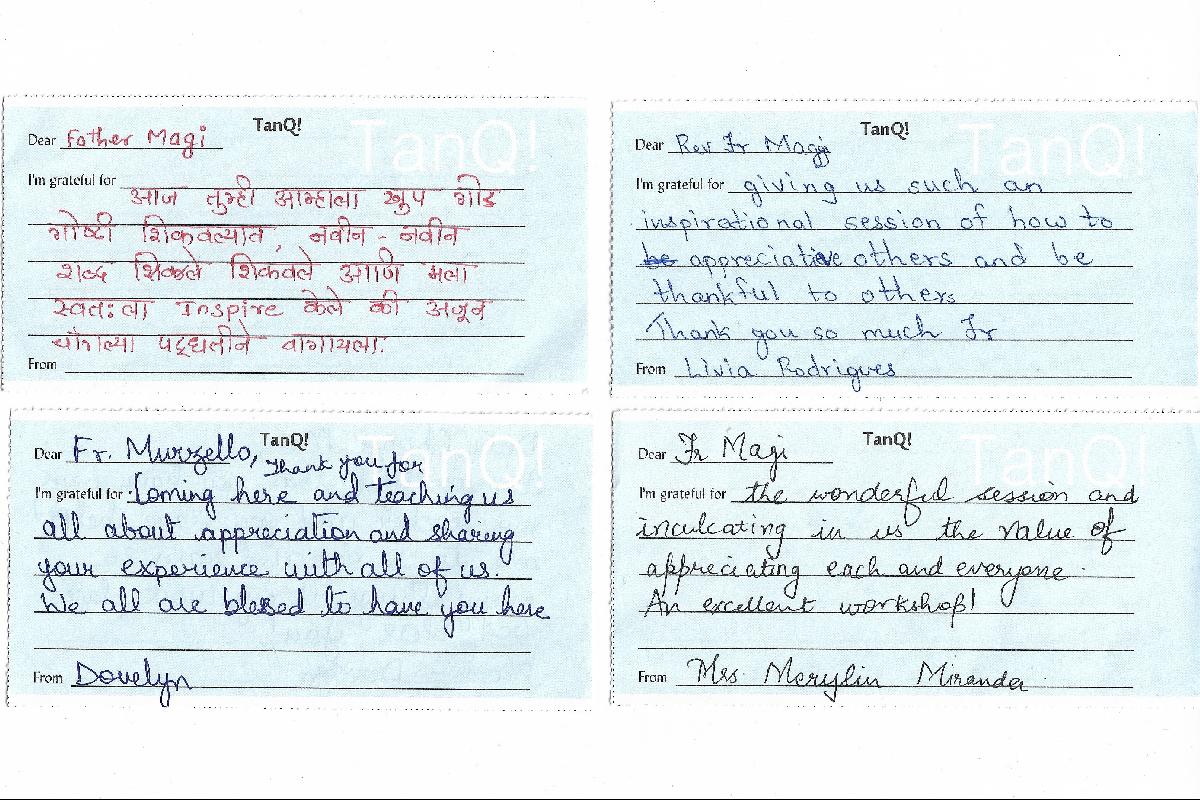 TanQ!
TanQ!
Dear Father Magi
I'm grateful for
आज तुम्ही आम्हाला खुप गोड
गोष्टी शिकवल्यात, नवीन - नवीन
शब्द शिकले शिकवले आणि मला
स्वतःला Inspire केले की अजून
चांगल्या पद्धतीने वागायला.
From
TanQ!
TanQ!
Dear Rev Fr Magi
I'm grateful for giving us such an
inspirational session of how to
be appreciative others and be
thankful to others
Thank you so much Fr
From Livia Rodrigues
TanQ!
TanQ!
Dear Fr. Murzello,
Thank you for
I'm grateful for Coming here and teaching us
all about appreciation and sharing
your experience with all of us.
We all are blessed to have you here
From Dovelyn
TanQ!
TanQ!
Dear Fr Magi
I'm grateful for the wonderful session and
inculcating in us the value of
appreciating each and everyone.
An excellent workshop!
From Mrs. Merylin Miranda